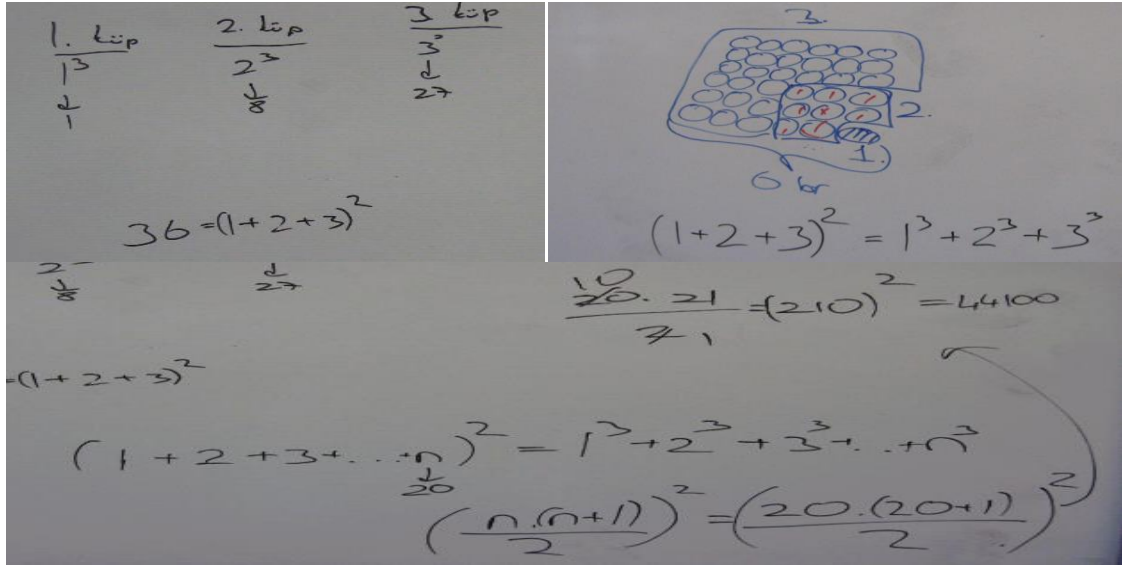 1. küp 2. küp 3. küp
1³ 2³ 3³
↓ ↓ ↓
1 8 27
36 = (1 + 2 + 3)²
3.
2.
1.
6 br
(1 + 2 + 3)² = 1³ + 2³ + 3³
2
↓ ↓
8 27
10
20. 21 / 2 1 = (210)² = 44100
= (1 + 2 + 3)²
(1 + 2 + 3 + ... + n)² = 1³ + 2³ + 3³ + ... + n³
↓
20
(n.(n+1) / 2)² = (20.(20+1) / 2)²